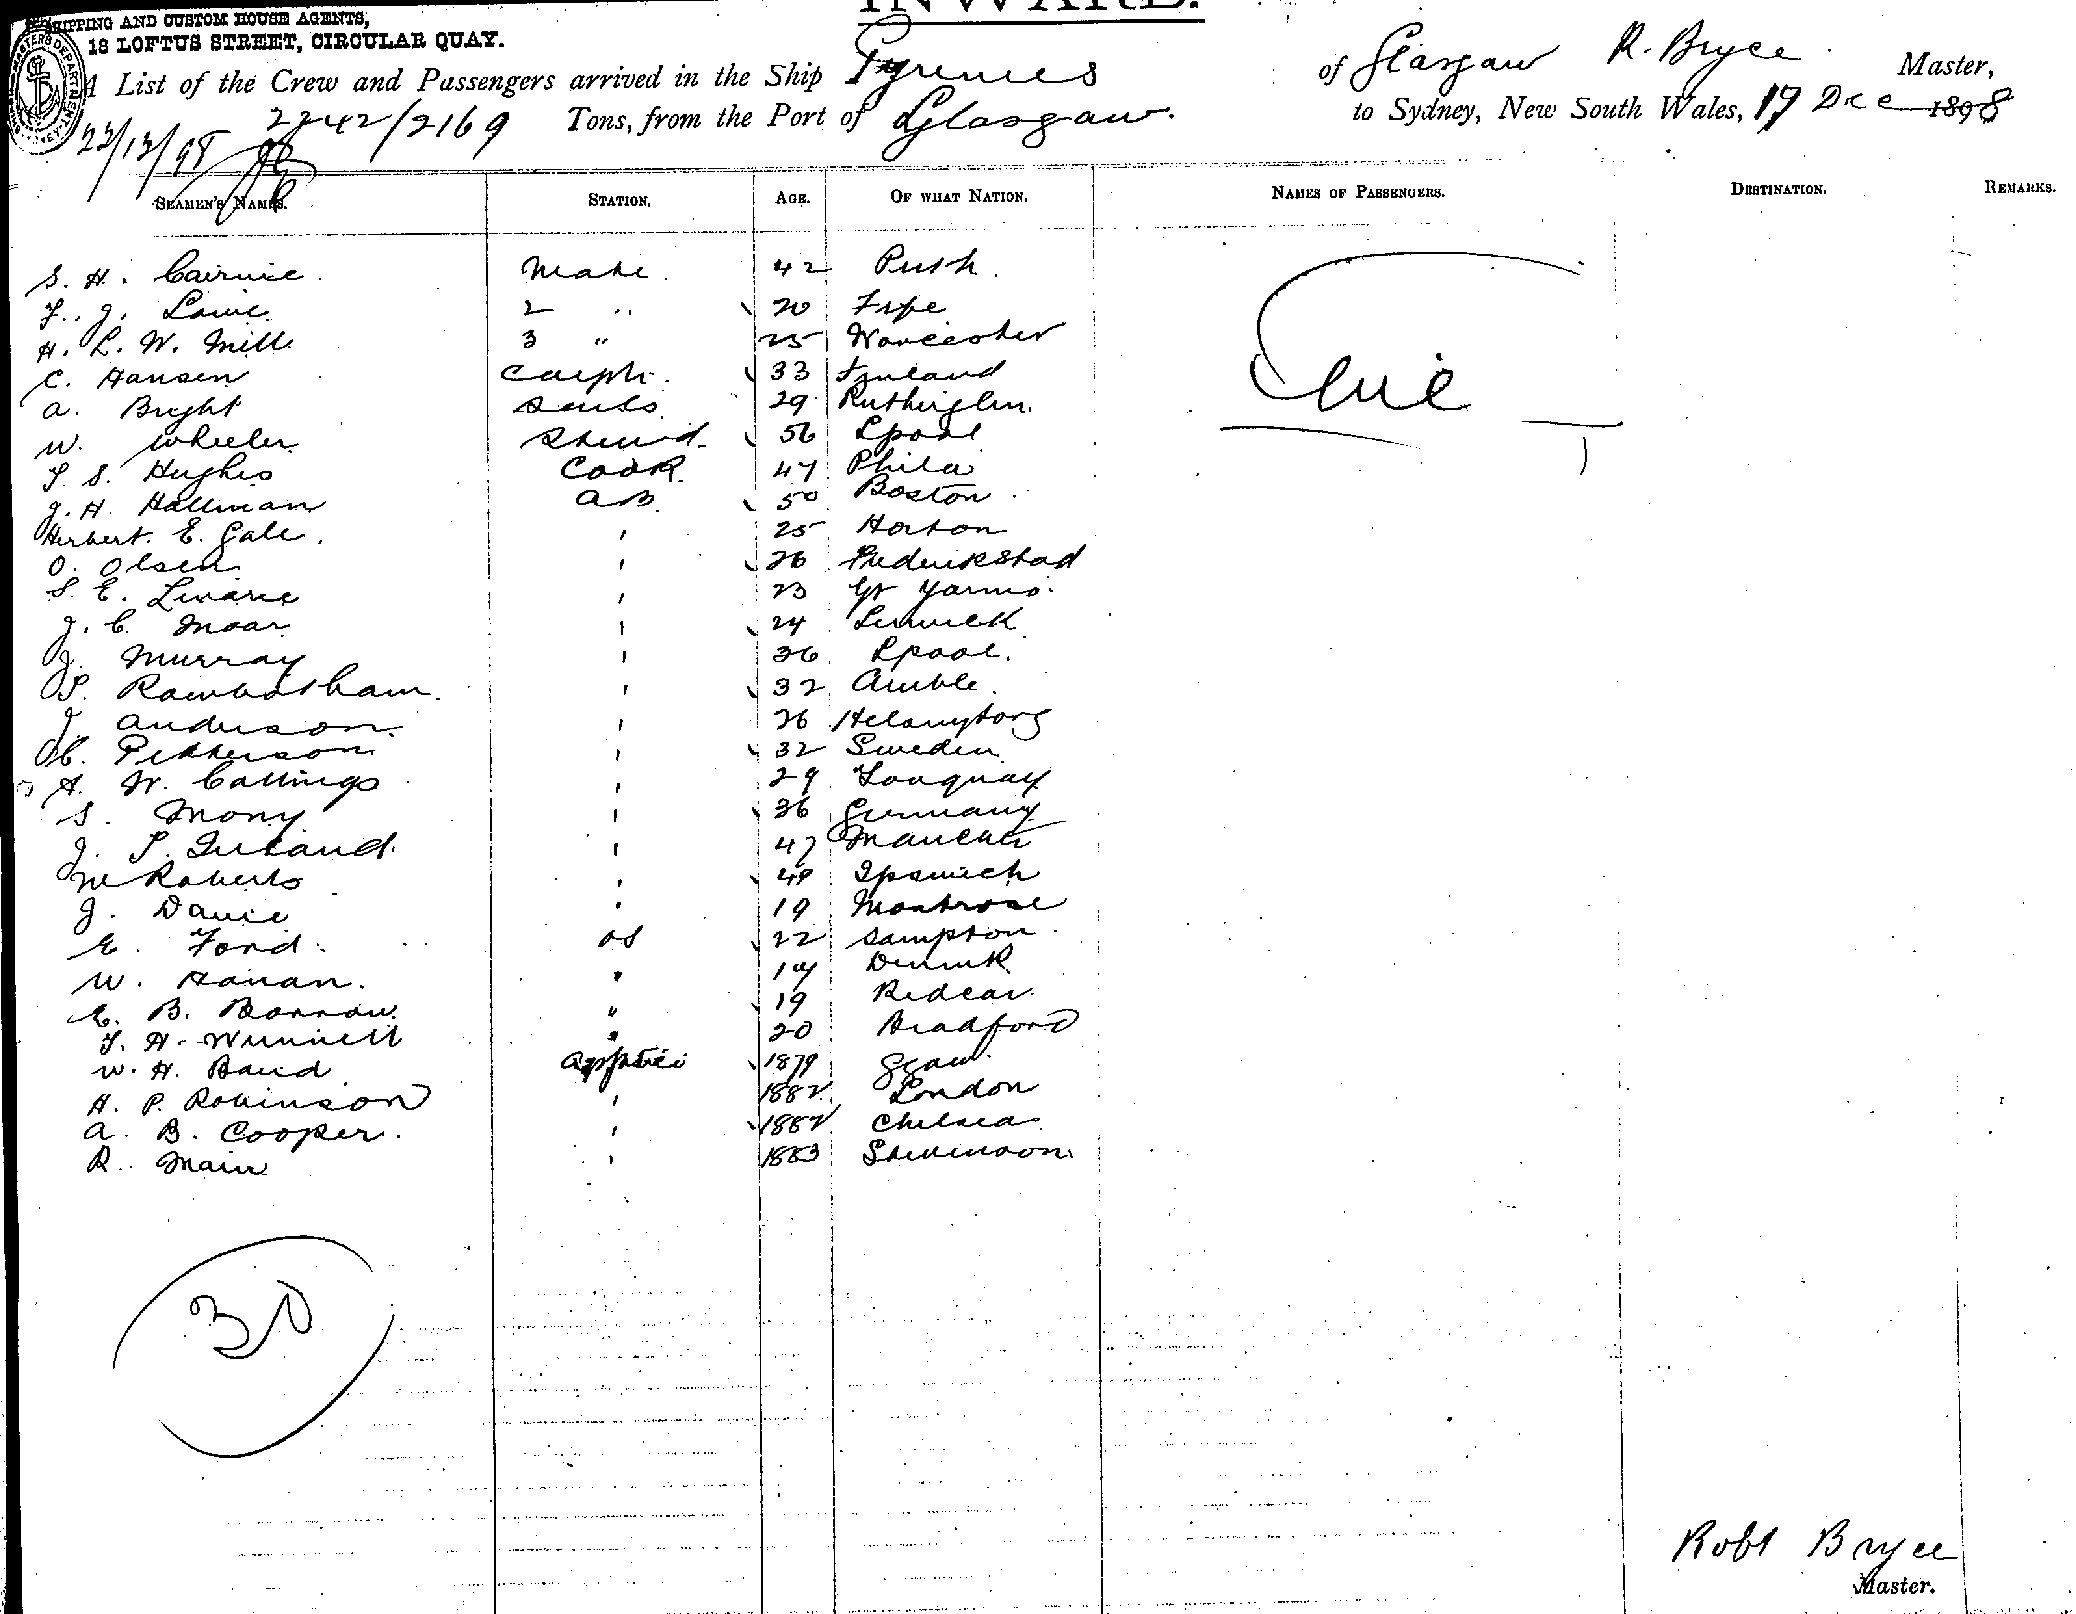 SHIPPING AND CUSTOM HOUSE AGENTS,
18 LOFTUS STREET, CIRCULAR QUAY.
INWARD.
A List of the Crew and Passengers arrived in the Ship Pyrenees of Glasgow R. Bryce Master,
2242/2169 Tons, from the Port of Glasgow. to Sydney, New South Wales, 17 Dec 1898
22/12/98
SEAMEN'S NAMES. STATION. AGE. OF WHAT NATION. NAMES OF PASSENGERS. DESTINATION. REMARKS.
S. H. Cairnie. Mate. 42 Perth.
F. J. Lawie 2 " 20 Fife
H. L. W. Mill 3 " 25 Worcester
C. Hansen Carptr. 33 Finland
A. Bright Sails 29 Rutherglen.
W. Wheeler Stewd. 56 Lpool
T. S. Hughes Cook. 47 Phila
J. H. Hallman AB 50 Boston
Herbert. E. Gale. ' 25 Horton
O. Olsen ' 26 Frederikstad
S. E. ' 23 Gt Yarmo.
J. C. Moar ' 24 Lerwick
J. Murray ' 36 Lpool.
P. Rowbotham. ' 32 Amble.
J. Anderson. ' 26
C. Petterson ' 32 Sweden
A. W. Collings ' 29 Torquay
S. Mony ' 36 Germany
J. P. Ireland. ' 47 Manchtr
W Roberts ' 48 Ipswich
J. Davie ' 19 Montrose
E. Ford. OS 22 Sampton
W. Hanan. " 19
E. B. Barrow. " 19 Redcar.
T. H. Wunnell " 20 Bradford
W. H. Baird Apptice 1879 Ggow.
H. P. Robinson ' 1882 London
A. B. Cooper. ' 1882 Chelsea
R. Main ' 1883 Stevenson.
30
Robt Bryce
Master.